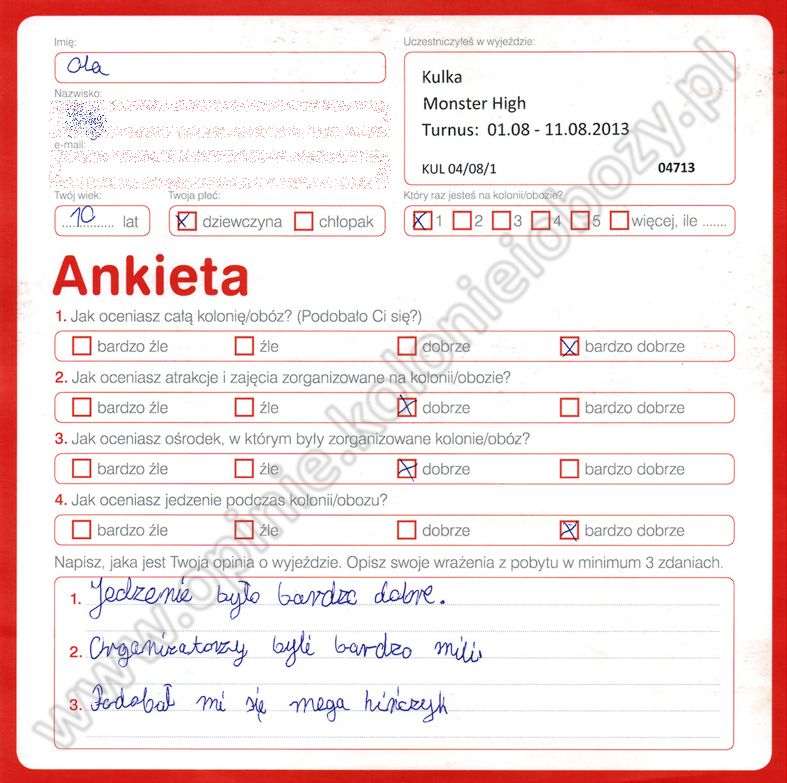 Imię:
Ola
Uczestniczyłeś w wyjeździe:
Kulka
Monster High
Turnus: 01.08 - 11.08.2013
KUL 04/08/1 04713
Nazwisko:
e-mail:
Twój wiek: Twoja płeć: Który raz jesteś na kolonii/obozie?
10 lat dziewczyna chłopak 1 2 3 4 5 więcej, ile .......
Ankieta
1. Jak oceniasz całą kolonię/obóz? (Podobało Ci się?)
bardzo źle źle dobrze bardzo dobrze
2. Jak oceniasz atrakcje i zajęcia zorganizowane na kolonii/obozie?
bardzo źle źle dobrze bardzo dobrze
3. Jak oceniasz ośrodek, w którym były zorganizowane kolonie/obóz?
bardzo źle źle dobrze bardzo dobrze
4. Jak oceniasz jedzenie podczas kolonii/obozu?
bardzo źle źle dobrze bardzo dobrze
Napisz, jaka jest Twoja opinia o wyjeździe. Opisz swoje wrażenia z pobytu w minimum 3 zdaniach.
1. Jedzenie było bardzo dobre.
2. Organizatorzy byli bardzo mili
3. Podobał mi się mega hińczyk
www.opinie.kolonieiobozy.pl